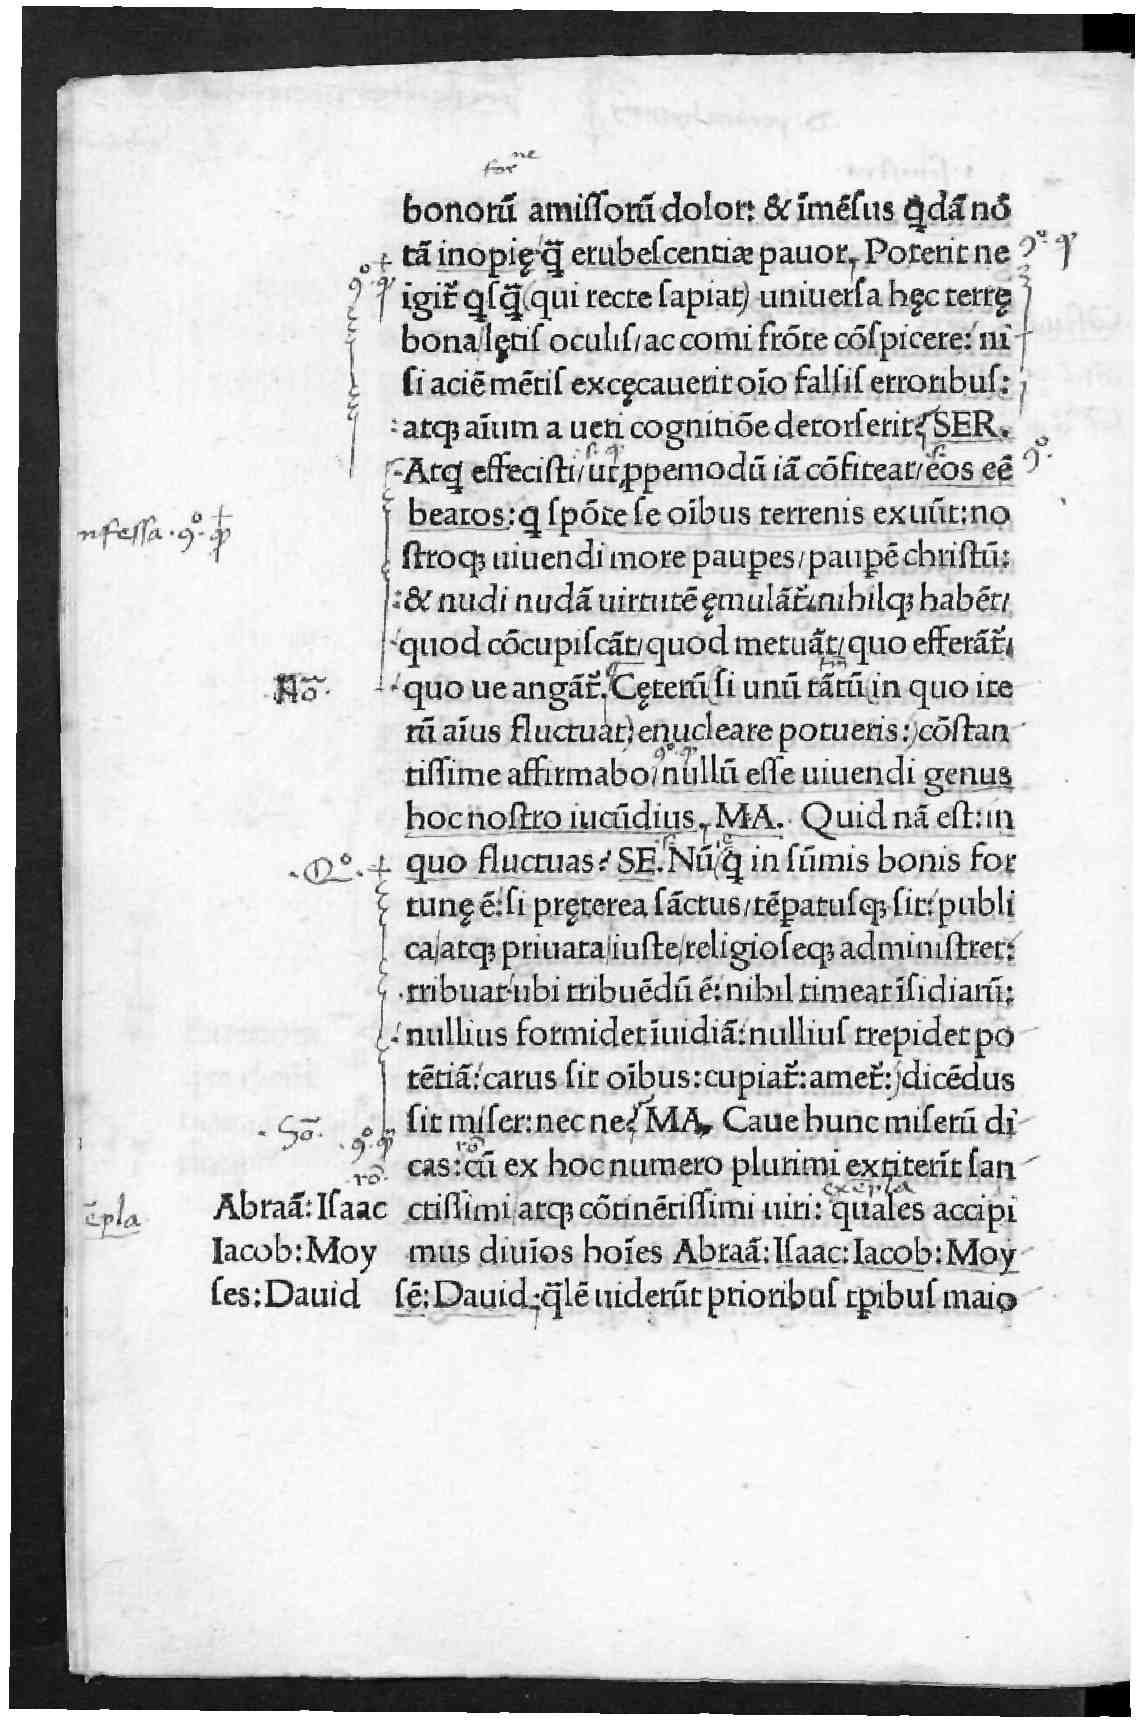 bonoꝝ̃ amiſſoꝝ̃ dolor: & ĩmẽſus q̃dã nõ
tã inopię q̃ erubeſcentiæ pauor, Poterit ne
igit̃ qſq̃ (qui recte ſapiat) uniuerſa hęc terrę
bona/lętiſ oculiſ/ac comi frõte cõſpicere: ni
ſi aciẽ mẽtiſ excęcauerit oĩo falſiſ erroribuſ:
atqꝫ aĩum a ueri cognitiõe detorſerit? SER.
Atqꝫ effeciſti/ut ꝓpemodũ iã cõfitear/eos eẽ
beatos: q ſpõte ſe oĩbus terrenis exuũt: no
ſtroqꝫ uiuendi more pauꝑes/pauꝑẽ chriſtũ:
& nudi nudã uirtutẽ ęmulãt̃: nihilqꝫ habẽt/
quod cõcupiſcãt/quod metuãt/quo efferãt̃/
quo ue angãt̃. Cęteꝝ̃ ſi unũ tãtũ (in quo ite
ꝝ̃ aĩus fluctuat) enucleare potueris: cõſtan
tiſſime affirmabo/nullũ eſſe uiuendi genus
hoc noſtro iucũdius. MA. Quid nã eſt: in
quo fluctuas? SE. Nũ q̃ in ſũmis bonis for
tunę ẽ: ſi pręterea ſãctus/tẽꝑatuſqꝫ ſit: publi
ca/atqꝫ priuata/iuſte/religioſeqꝫ adminiſtret:
tribuat ubi tribuẽdũ ẽ: nihil timeat ĩſidiaꝝ̃:
nullius formidet ĩuidiã: nulliuſ trepidet po
tẽtiã: carus ſit oĩbus: cupiat̃: amet̃: dicẽdus
ſit miſer: nec ne? MA. Caue hunc miſeꝝ̃ di
cas: cũ ex hoc numero plurimi extiterĩt ſan
ctiſſimi/atqꝫ cõtinẽtiſſimi uiri: quales accipi
mus diuĩos hoĩes Abraã: Iſaac: Iacob: Moy
ſẽ: Dauid: q̃lẽ uiderũt prioribuſ tꝑibuſ maio
Abraã: Iſaac
Iacob: Moy
ſes: Dauid